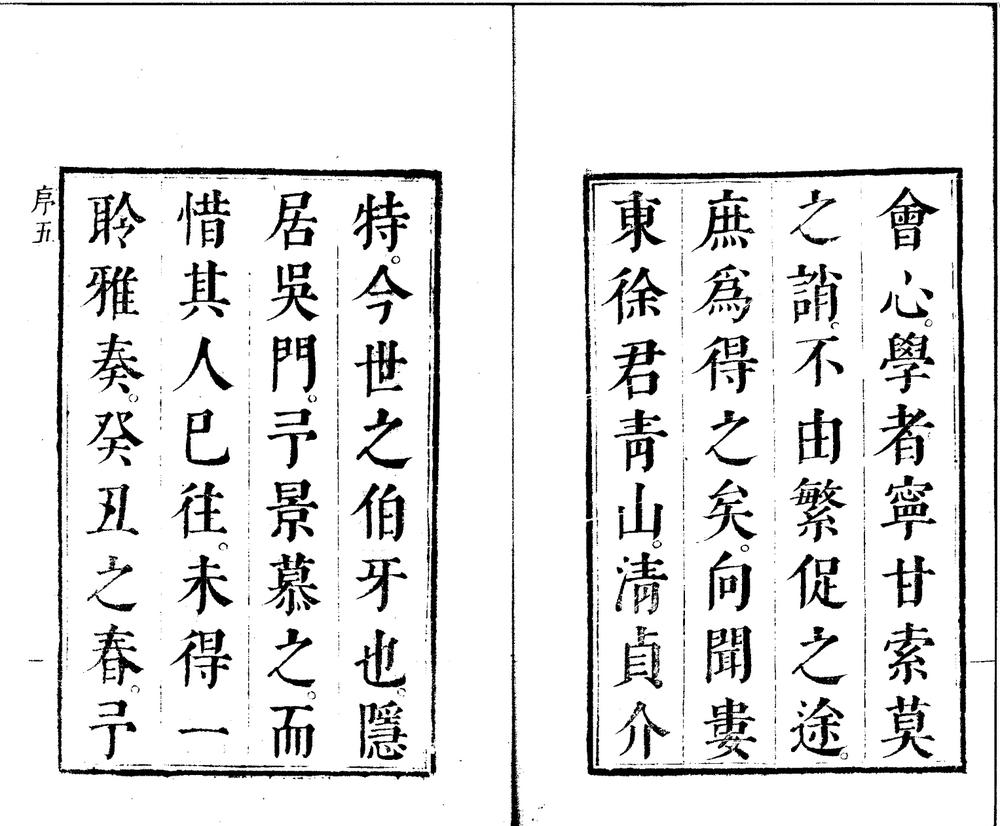 會心。學者寧甘索莫
之誚。不由繁促之途。
庶爲得之矣。向聞婁
東徐君青山。清貞介
特。今世之伯牙也。隱
居吳門。予景慕之。而
惜其人已往。未得一
聆雅奏。癸丑之春。予
序五